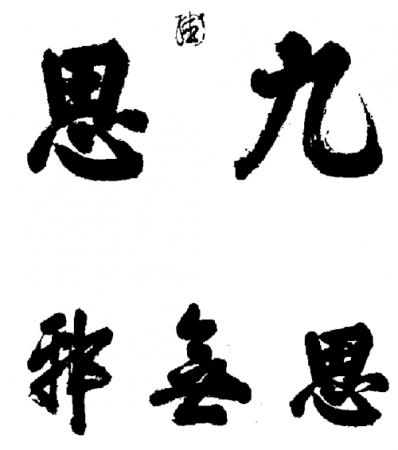 九思
思無邪